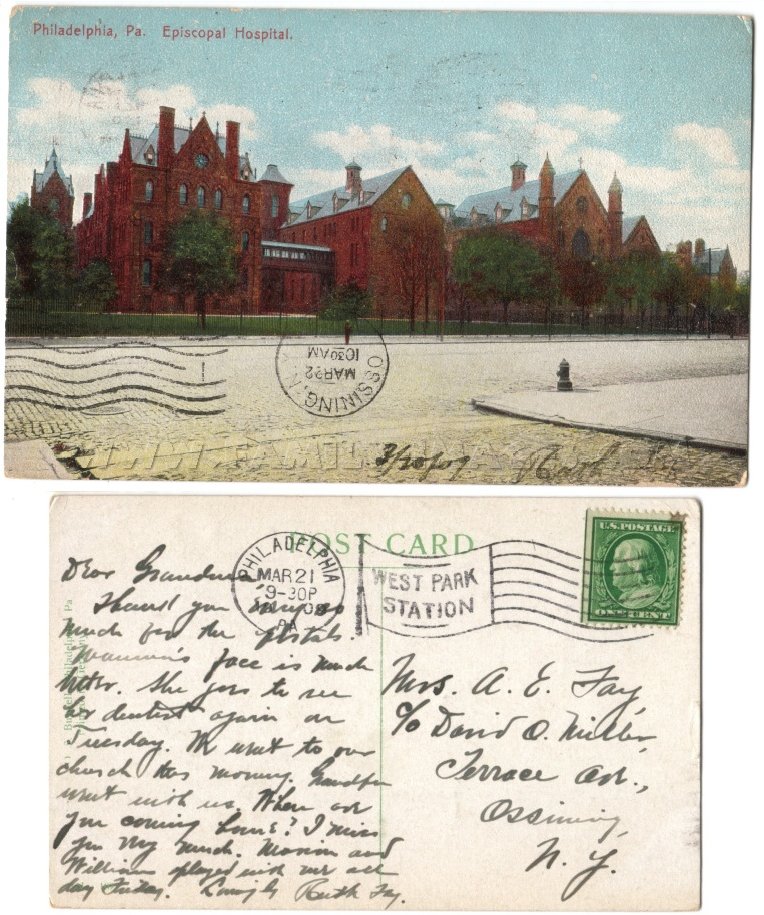 Philadelphia, Pa. Episcopal Hospital.
OSSINING, N.Y.
MAR 22
10 30 AM
3/20/09 Ruth
POST CARD
PHILADELPHIA
MAR 21
9-30P
09
PA
WEST PARK
STATION
U.S. POSTAGE
ONE CENT
Dear Grandma
Thank you very so
much for the postals.
Mamma's face is much
better. She goes to see
her dentist again on
Tuesday. We went to our
church this morning. Grandpa
went with us. When are
you coming home? I miss
you very much. Marion and
William played with me all
day Friday. Lovingly Ruth Fay.
Mrs. A. E. Fay,
c/o David O. Miller,
Terrace Ave.,
Ossining,
N. Y.